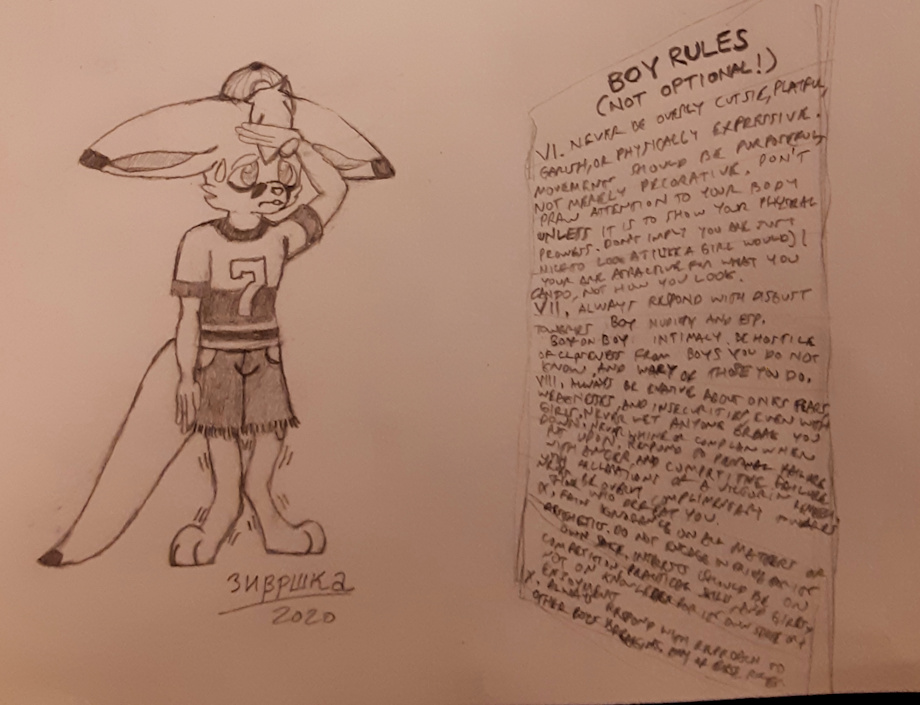 7
ЗИВРШКА
2020
BOY RULES
(NOT OPTIONAL!)
VI. NEVER BE OVERLY CUTSIE, PLAYFUL,
GARISH, OR PHYSICALLY EXPRESSIVE.
MOVEMENT SHOULD BE PURPOSEFUL,
NOT MERELY DECORATIVE. DON'T
DRAW ATTENTION TO YOUR BODY
UNLESS IT IS TO SHOW YOUR PHYSICAL
PROWESS. DON'T IMPLY YOU ARE JUST
NICE TO LOOK AT (LIKE A GIRL WOULD)
YOUR ARE ATTRACTIVE FOR WHAT YOU
CAN DO, NOT HOW YOU LOOK.
VII. ALWAYS RESPOND WITH DISGUST
TOWARDS BOY NUDITY AND ESP.
BOY-ON-BOY INTIMACY. BE HOSTILE
OF CLOSENESS FROM BOYS YOU DO NOT
KNOW, AND WARY OF THOSE YOU DO.
VIII. ALWAYS BE EVASIVE ABOUT ONES FEARS,
WEAKNESSES, AND INSECURITIES, EVEN WITH
GIRLS. NEVER LET ANYONE BREAK YOU
DOWN. NEVER WHINE OR COMPLAIN WHEN
UPON. RESPOND TO PERSONAL FAILURE
WITH ANGER, AND COMPETITIVE FAILURE
WITH DECLARATIONS OF A VICTORY IN
BE OVERLY COMPLIMENTARY TOWARDS
WHO DEFEAT YOU.
IX. FEIGN IGNORANCE ON ALL MATTERS OF
AESTHETICS. DO NOT ENGAGE IN
OWN SAKE. INTERESTS SHOULD BE ON
COMPETITION, PRACTICAL SKILLS AND
NOT ON KNOWLEDGE FOR ITS OWN
ENJOYMENT
X. ALWAYS RESPOND WITH
OTHER BOYS BREAKING ANY OF THESE RULES.